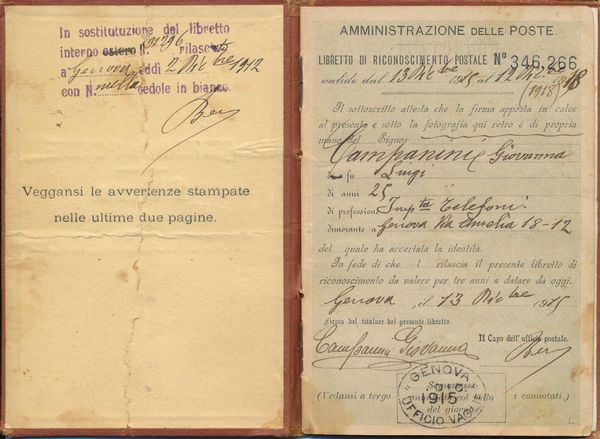 In sostituzione del libretto
interno estero N. 31296 rilasciato
a Genova addì 2 Dicbre 1912
con N. nulla cedole in bianco.
Ber
Veggansi le avvertenze stampate
nelle ultime due pagine.
AMMINISTRAZIONE DELLE POSTE
LIBRETTO DI RICONOSCIMENTO POSTALE No 346,266
valido dal 13 Dicbre 1915 al 12 Dicbre
1918 1918
Il sottoscritto attesta che la firma apposta in calce
al presente e sotto la fotografia qui retro è di propria
mano del Signor
Campanini Giovanna
di fu Luigi
di anni 25
di professione Impta Telefoni
dimorante a Genova Via Amelia 18-12
del quale ha accertata la identità.
In fede di che rilascia il presente libretto di
riconoscimento da valere per tre anni a datare da oggi.
Genova, il 13 Dicbre 1915
Firma del titolare del presente libretto.
Il Capo dell'ufficio postale.
Campanini Giovanna
Ber
GENOVA
1915
UFFICIO VAGLIA
(Vedansi a tergo i connotati.)
del giorno